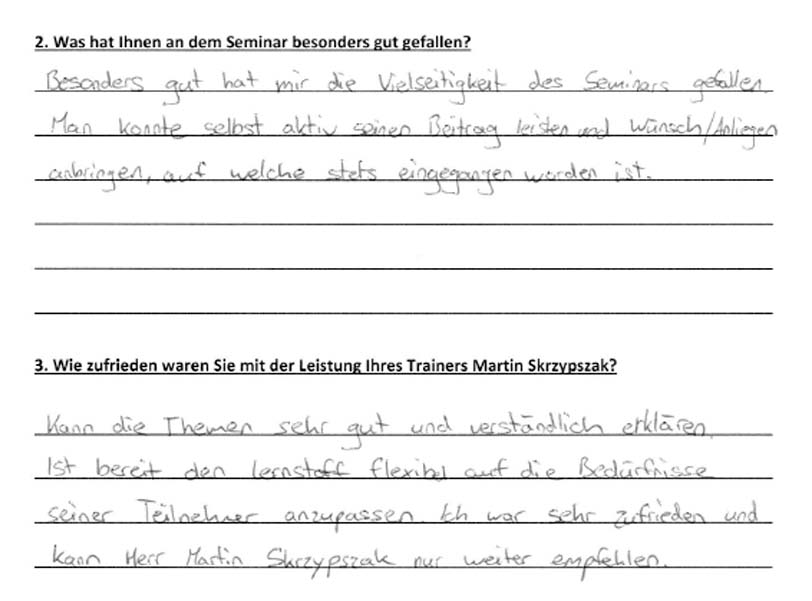 2. Was hat Ihnen an dem Seminar besonders gut gefallen?
Besonders gut hat mir die Vielseitigkeit des Seminars gefallen.
Man konnte selbst aktiv seinen Beitrag leisten und Wünsch/Anliegen
anbringen, auf welche stets eingegangen worden ist.
3. Wie zufrieden waren Sie mit der Leistung Ihres Trainers Martin Skrzypszak?
Kann die Themen sehr gut und verständlich erklären.
Ist bereit den Lernstoff flexibel auf die Bedürfnisse
seiner Teilnehmer anzupassen. Ich war sehr zufrieden und
kann Herr Martin Skrzypszak nur weiter empfehlen.